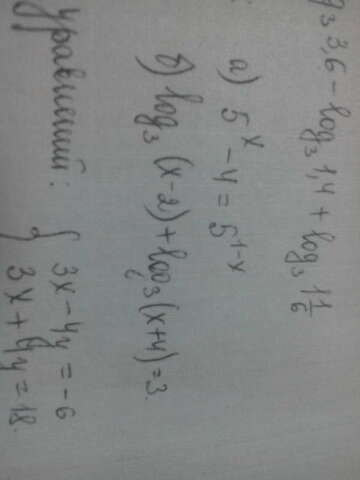 3,6 - log₃ 1,4 + log₃ 1 1/6
а) 5ˣ - 4 = 5¹⁻ˣ
б) log₃ (x-2) + log₃ (x+4) = 3.
уравнений: { 3x - 4y = -6
3x + 4y = 18.